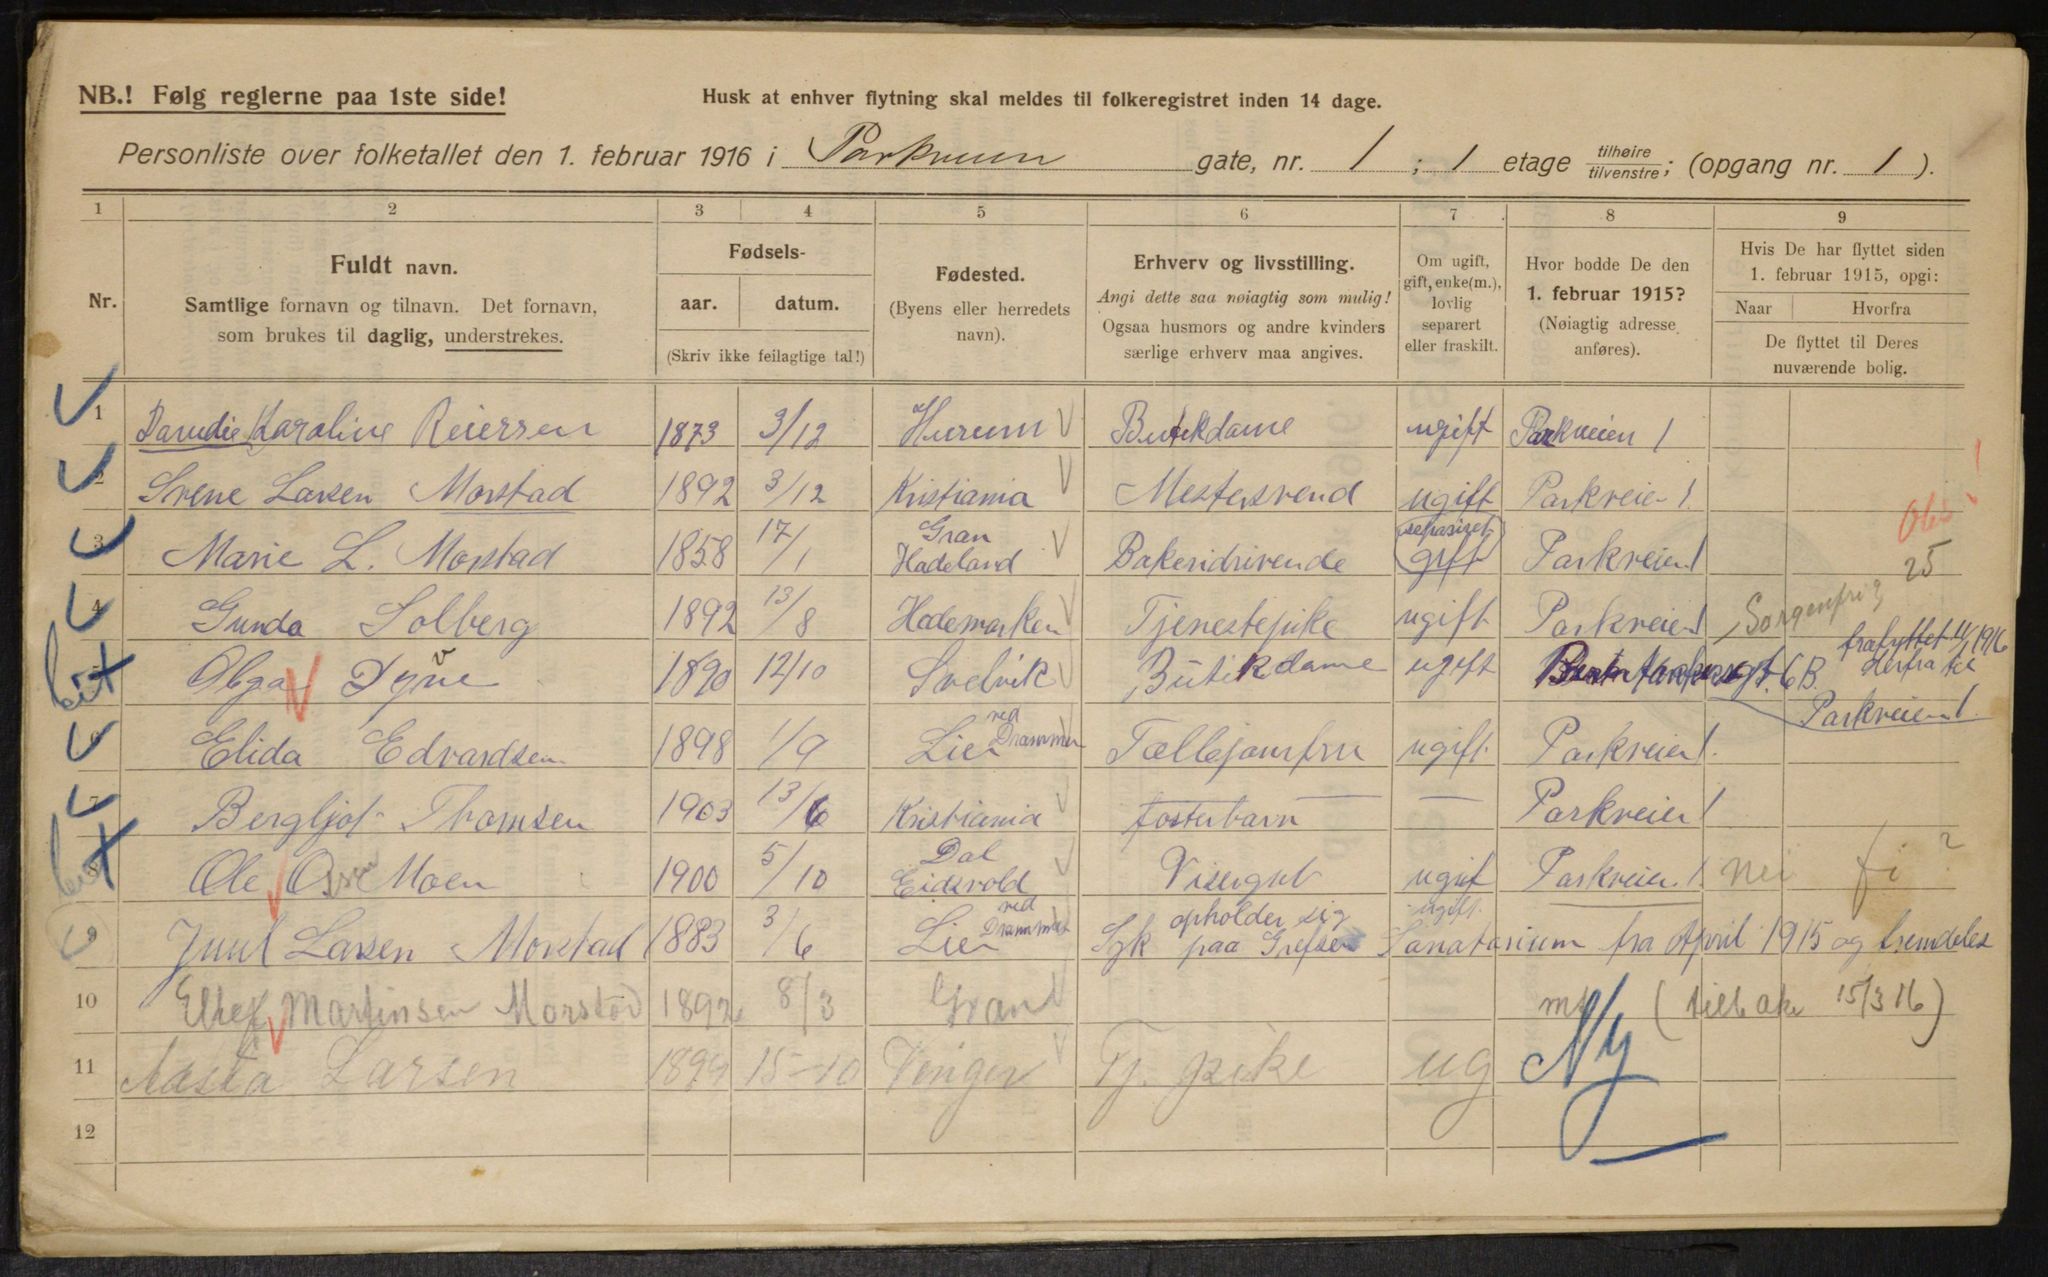 NB.! Følg reglerne paa 1ste side!
Husk at enhver flytning skal meldes til folkeregistret inden 14 dage.
Personliste over folketallet den 1. februar 1916 i Parkveien gate, nr. 1 ; 1 etage tilhøire/tilvenstre; (opgang nr. 1 ).
1 2 3 4 5 6 7 8 9
Nr.
Fuldt navn.
Samtlige fornavn og tilnavn. Det fornavn,
som brukes til daglig, understrekes.
Fødsels-
aar. datum.
(Skriv ikke feilagtige tal!)
Fødested.
(Byens eller herredets
navn).
Erhverv og livsstilling.
Angi dette saa nøiagtig som mulig!
Ogsaa husmors og andre kvinders
særlige erhverv maa angives.
Om ugift,
gift, enke(m.),
lovlig
separert
eller fraskilt.
Hvor bodde De den
1. februar 1915?
(Nøiagtig adresse
anføres).
Hvis De har flyttet siden
1. februar 1915, opgi:
Naar Hvorfra
De flyttet til Deres
nuværende bolig.
1 Karoline Reiersen 1873 3/12 Hurum Butikdame ugift Parkveien 1
2 Larsen Morstad 1892 3/12 Kristiania Mestersvend ugift Parkveien 1
Obs!
3 Marie L. Morstad 1858 17/1 Gran Hadeland Bakeridrivende separeret gift Parkveien 1
25
4 Gunda Solberg 1892 13/8 Hedemarken Tjenestepike ugift Parkveien 1 Sorgenfrig
5 Olga Dyve 1890 12/10 Svelvik Butikdame ugift 6 B. fraflyttet 11/1 1916 derfra til
Parkveien 1.
6 Elida Edvardsen 1898 1/9 Lier ved Drammen ugift Parkveien 1.
7 Bergljot Thomsen 1903 13/6 Kristiania fosterbarn — — Parkveien 1
8 Ole Moen 1900 5/10 Dal Eidsvold Visergut ugift Parkveien 1 nei fi ?
9 Juul Larsen Morstad 1883 3/6 Lier ved Drammen ugift
Syk opholder sig paa Grefsen Sanatorium fra April 1915 og fremdeles
10 Martinsen Morstad 1892 8/3 Gran (tilbake 15/3 16)
11 Aasta Larsen 15-10 Vinger Tj. pike ug Ny
12